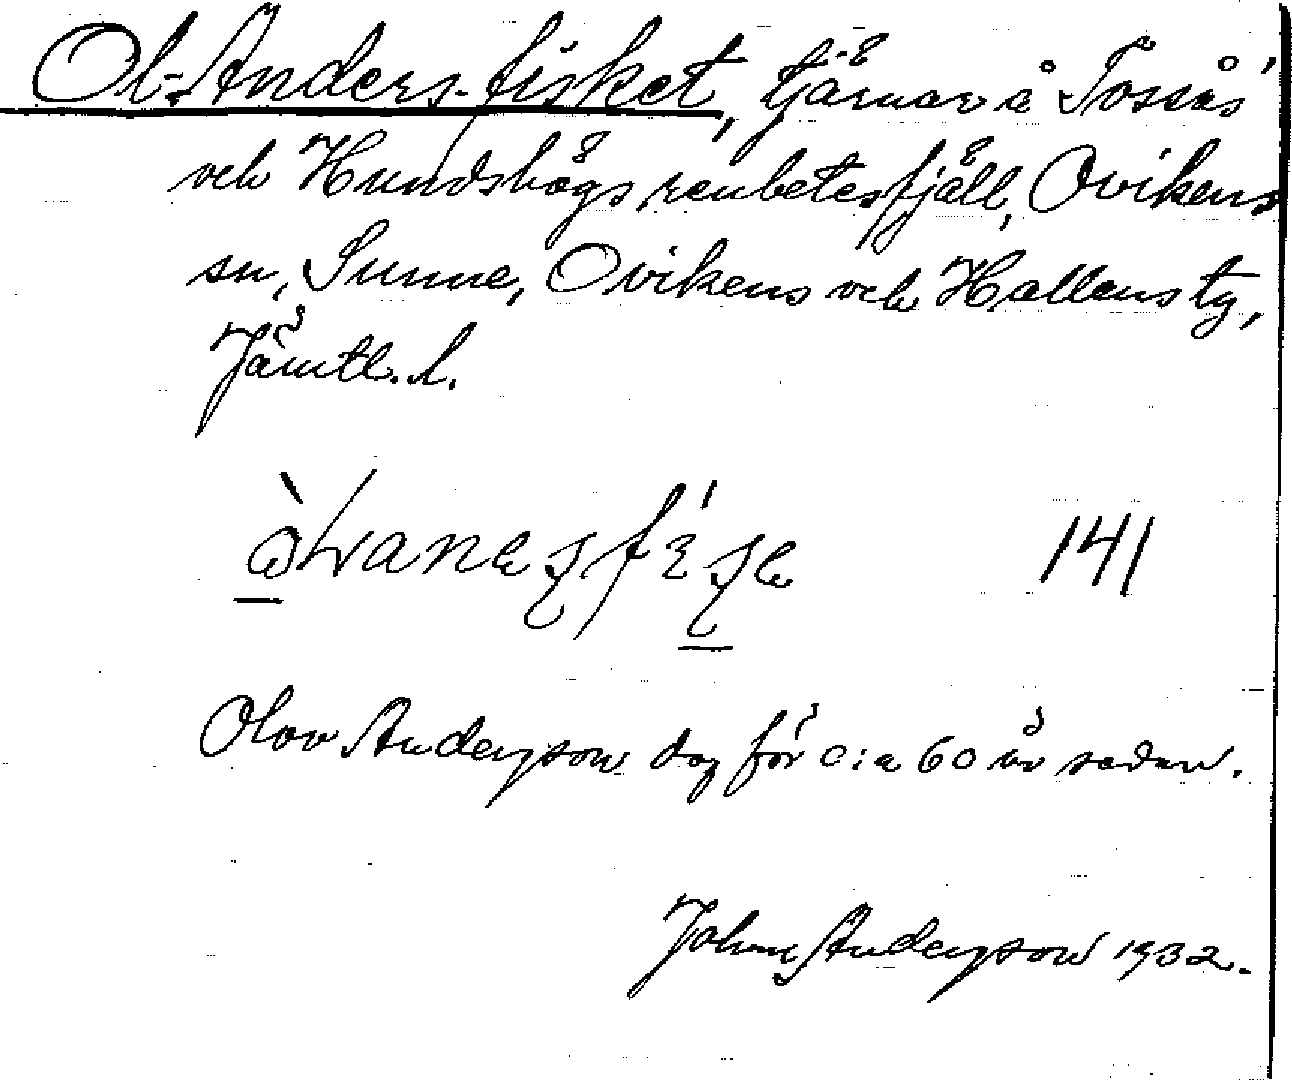 Ol-Anders-fisket, tjärnar å Tossås'
och Hundshögs renbetesfjäll, Ovikens
sn, Sunne, Ovikens och Hallens tg,
Jämtl. l.
141
Olov Andersson dog för c:a 60 år sedan.
John Andersson 1932.